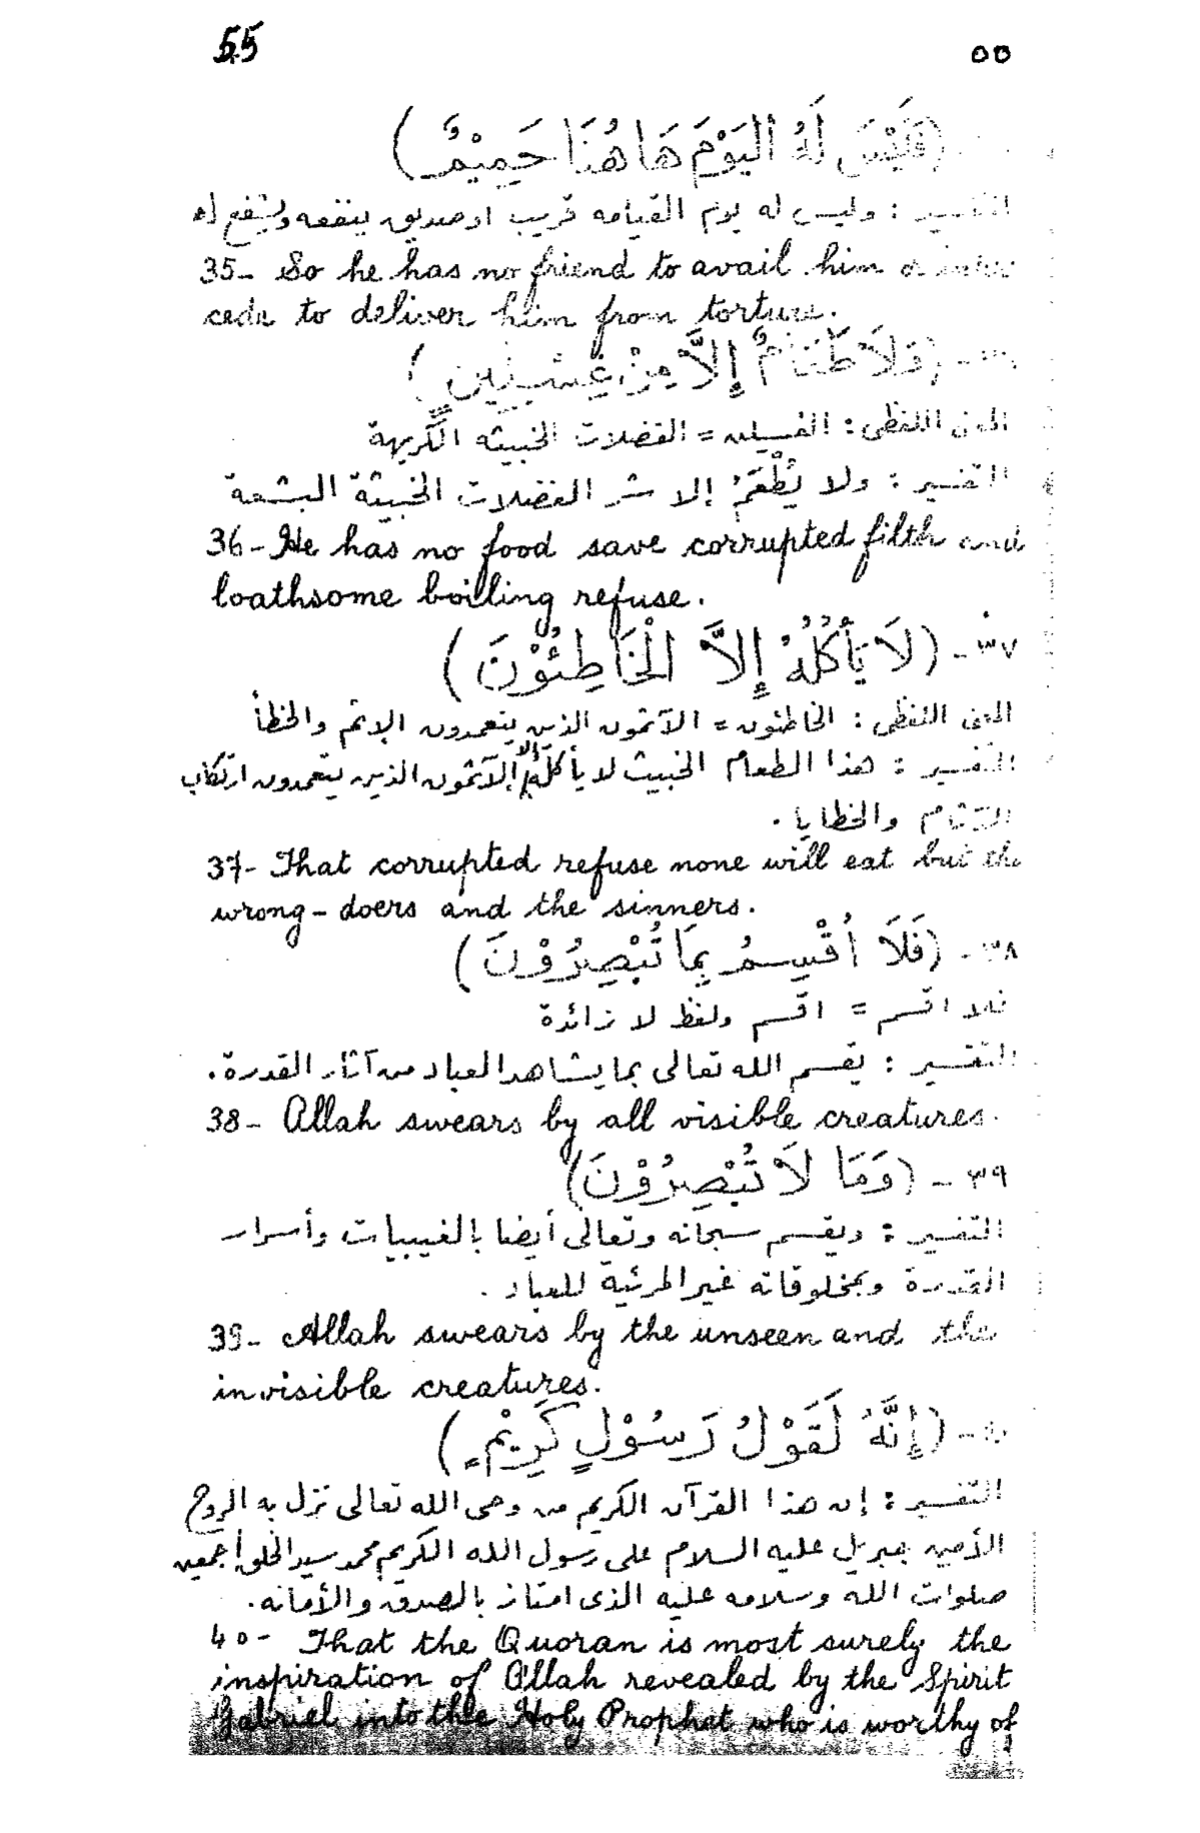 55 ٥٥
(فَلَيْسَ لَهُ الْيَوْمَ هَاهُنَا حَمِيْمٌ)
التفسير : وليس له يوم القيامه قريب او صديق ينفعه ويشفع له
35- So he has no friend to avail him or inter
cede to deliver him from torture.
٣٦ - (وَلَا طَعَامٌ إِلَّا مِنْ غِسْلِيْنٍ)
المعنى اللفظى : الغسلين = الفضلات الخبيثه الكريهة
التفسير : ولا يُطْعَمُ إلا شر الفضلات الخبيثة البشعة
36- He has no food save corrupted filth and
loathsome boilling refuse.
٣٧ - (لَا يَأْكُلُهُ إِلَّا الْخَاطِئُوْنَ)
المعنى اللفظى : الخاطئون = الآثمون الذين يتعمدون الإثم والخطأ
التفسير : هذا الطعام الخبيث لا يأكله إلا الآثمون الذين يتعمدون ارتكاب
الآثام والخطايا .
37- That corrupted refuse none will eat but the
wrong-doers and the sinners.
٣٨ - (فَلَا أُقْسِمُ بِمَا تُبْصِرُوْنَ)
فلا اقسم = اقسم ولفظ لا زائدة
التفسير : يقسم الله تعالى بما يشاهد العباد من آثار القدرة .
38- Allah swears by all visible creatures.
٣٩ - (وَمَا لَا تُبْصِرُوْنَ)
التفسير : ويقسم سبحانه وتعالى أيضا بالغيبيات وأسرار
القدرة وبمخلوقاته غير المرئية للعباد .
39- Allah swears by the unseen and the
invisible creatures.
٤٠ - (إِنَّهُ لَقَوْلُ رَسُوْلٍ كَرِيْمٍ)
التفسير : إن هذا القرآن الكريم من وحى الله تعالى نزل به الروح
الأمين جبريل عليه السلام على رسول الله الكريم محمد سيد الخلق أجمعين
صلوات الله وسلامه عليه الذى امتاز بالصدق والأمانه .
40- That the Quoran is most surely the
inspiration of Allah revealed by the Spirit
Gabriel into thle Holy Prophet who is worthy of